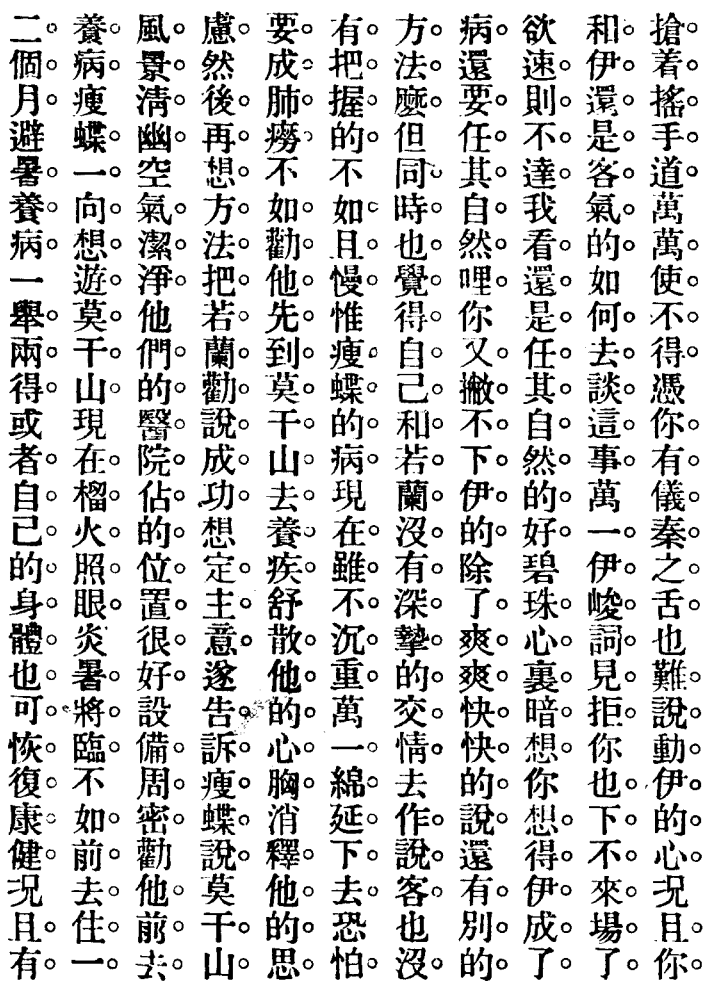 搶着搖手道萬萬使不得憑你有儀秦之舌也難說動伊的心況且你
和伊還是客氣的如何去談這事萬一伊峻詞見拒你也下不來場了
欲速則不達我看還是任其自然的好碧珠心裏暗想你想得伊成了
病還要任其自然哩你又撇不下伊的除了爽爽快快的說還有別的
方法麽但同時也覺得自己和若蘭沒有深摯的交情去作說客也沒
有把握的不如且慢惟瘦蝶的病現在雖不沉重萬一綿延下去恐怕
要成肺癆不如勸他先到莫干山去養疾舒散他的心胸消釋他的思
慮然後再想方法把若蘭勸說成功想定主意遂告訴瘦蝶說莫干山
風景清幽空氣潔淨他們的醫院佔的位置很好設備周密勸他前去
養病瘦蝶一向想遊莫干山現在榴火照眼炎暑將臨不如前去住一
二個月避暑養病一舉兩得或者自己的身體也可恢復康健況且有